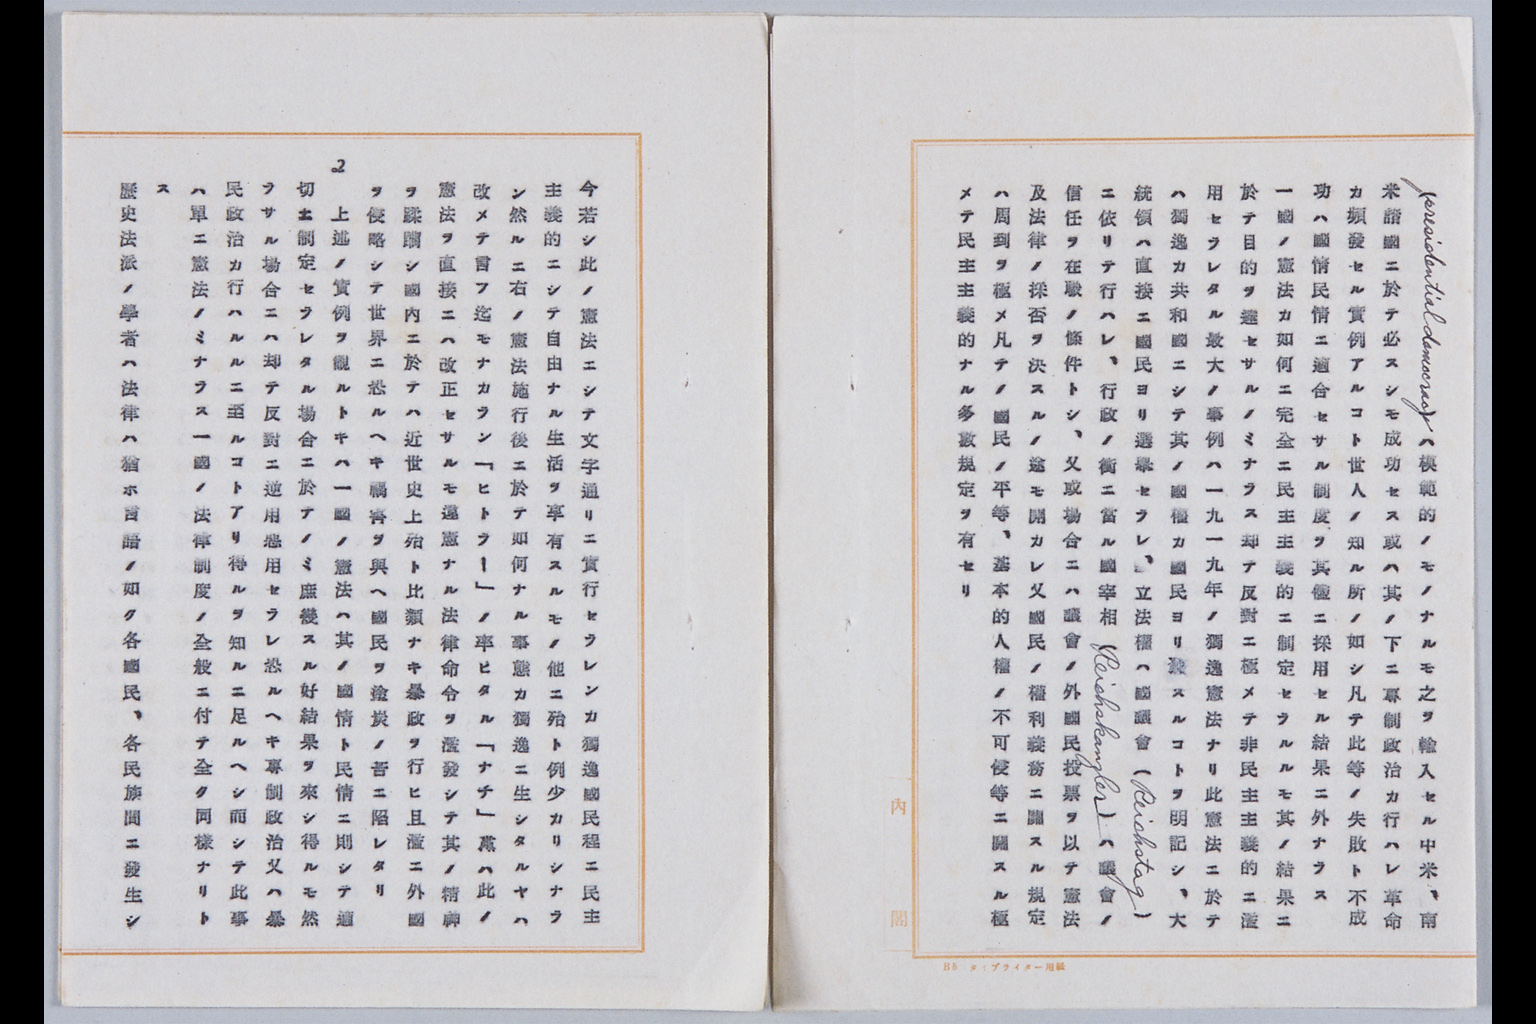 (presidential democracy)(模範的ノモノナルモ之ヲ輸入セル中米、南
米諸國ニ於テ必スシモ成功セス或ハ其ノ下ニ專制政治カ行ハレ革命
カ頻發セル實例アルコト世人ノ知ル所ノ如シ凡テ此等ノ失敗ト不成
功ハ國情民情ニ適合セサル制度ヲ其儘ニ採用セル結果ニ外ナラス
一國ノ憲法カ如何ニ完全ニ民主主義的ニ制定セラルルモ其ノ結果ニ
於テ目的ヲ達セサルノミナラス却テ反對ニ極メテ非民主主義的ニ濫
用セラレタル最大ノ事例ハ一九一九年ノ獨逸憲法ナリ此憲法ニ於テ
ハ獨逸カ共和國ニシテ其ノ國權カ國民ヨリ發スルコトヲ明記シ、大
統領ハ直接ニ國民ヨリ選擧セラレ、立法權(國議會(Reichstag)
ニ依リテ行ハレ、行政ノ衝ニ當ル國宰相(Reichskanzler)ハ議會ノ
信任ヲ在職ノ條件トシ、又或場合ニハ議會ノ外國民投票ヲ以テ憲法
及法律ノ採否ヲ決スルノ途モ開カレ又國民ノ權利義務ニ關スル規定
ハ周到ヲ極メ凡テノ國民ノ平等、基本的人權ノ不可侵等ニ關スル極
メテ民主主義的ナル多數規定ヲ有セリ
內閣
B5 タイプライター用紙
今若シ此ノ憲法ニシテ文字通リニ實行セラレンカ獨逸國民程ニ民主
主義的ニシテ自由ナル生活ヲ享有スルモノ他ニ殆ト例少カリシナラ
ン然ルニ右ノ憲法施行後ニ於テ如何ナル事態カ獨逸ニ生シタルヤハ
改メテ言フ迄モナカラン「ヒトラー」ノ率ヒタル「ナチ」黨ハ此ノ
憲法ヲ直接ニハ改正セサルモ違憲ナル法律命令ヲ濫發シテ其ノ精神
ヲ蹂躙シ國內ニ於テハ近世史上殆ト比類ナキ暴政ヲ行ヒ且濫ニ外國
ヲ侵略シテ世界ニ恐ルヘキ禍害ヲ與ヘ國民ヲ塗炭ノ苦ニ陷レタリ
2 上述ノ實例ヲ觀ルトキハ一國ノ憲法ハ其ノ國情ト民情ニ則シテ適
切ニ制定セラレタル場合ニ於テノミ庶幾スル好結果ヲ來シ得ルモ然
ラサル場合ニハ却テ反對ニ逆用惡用セラレ恐ルヘキ專制政治又ハ暴
民政治カ行ハルルニ至ルコトアリ得ルヲ知ルニ足ルヘシ而シテ此事
ハ單ニ憲法ノミナラス一國ノ法律制度ノ全般ニ付テ全ク同樣ナリト
ス
歷史法派ノ學者ハ法律ハ猶ホ言語ノ如ク各國民、各民族間ニ發生シ